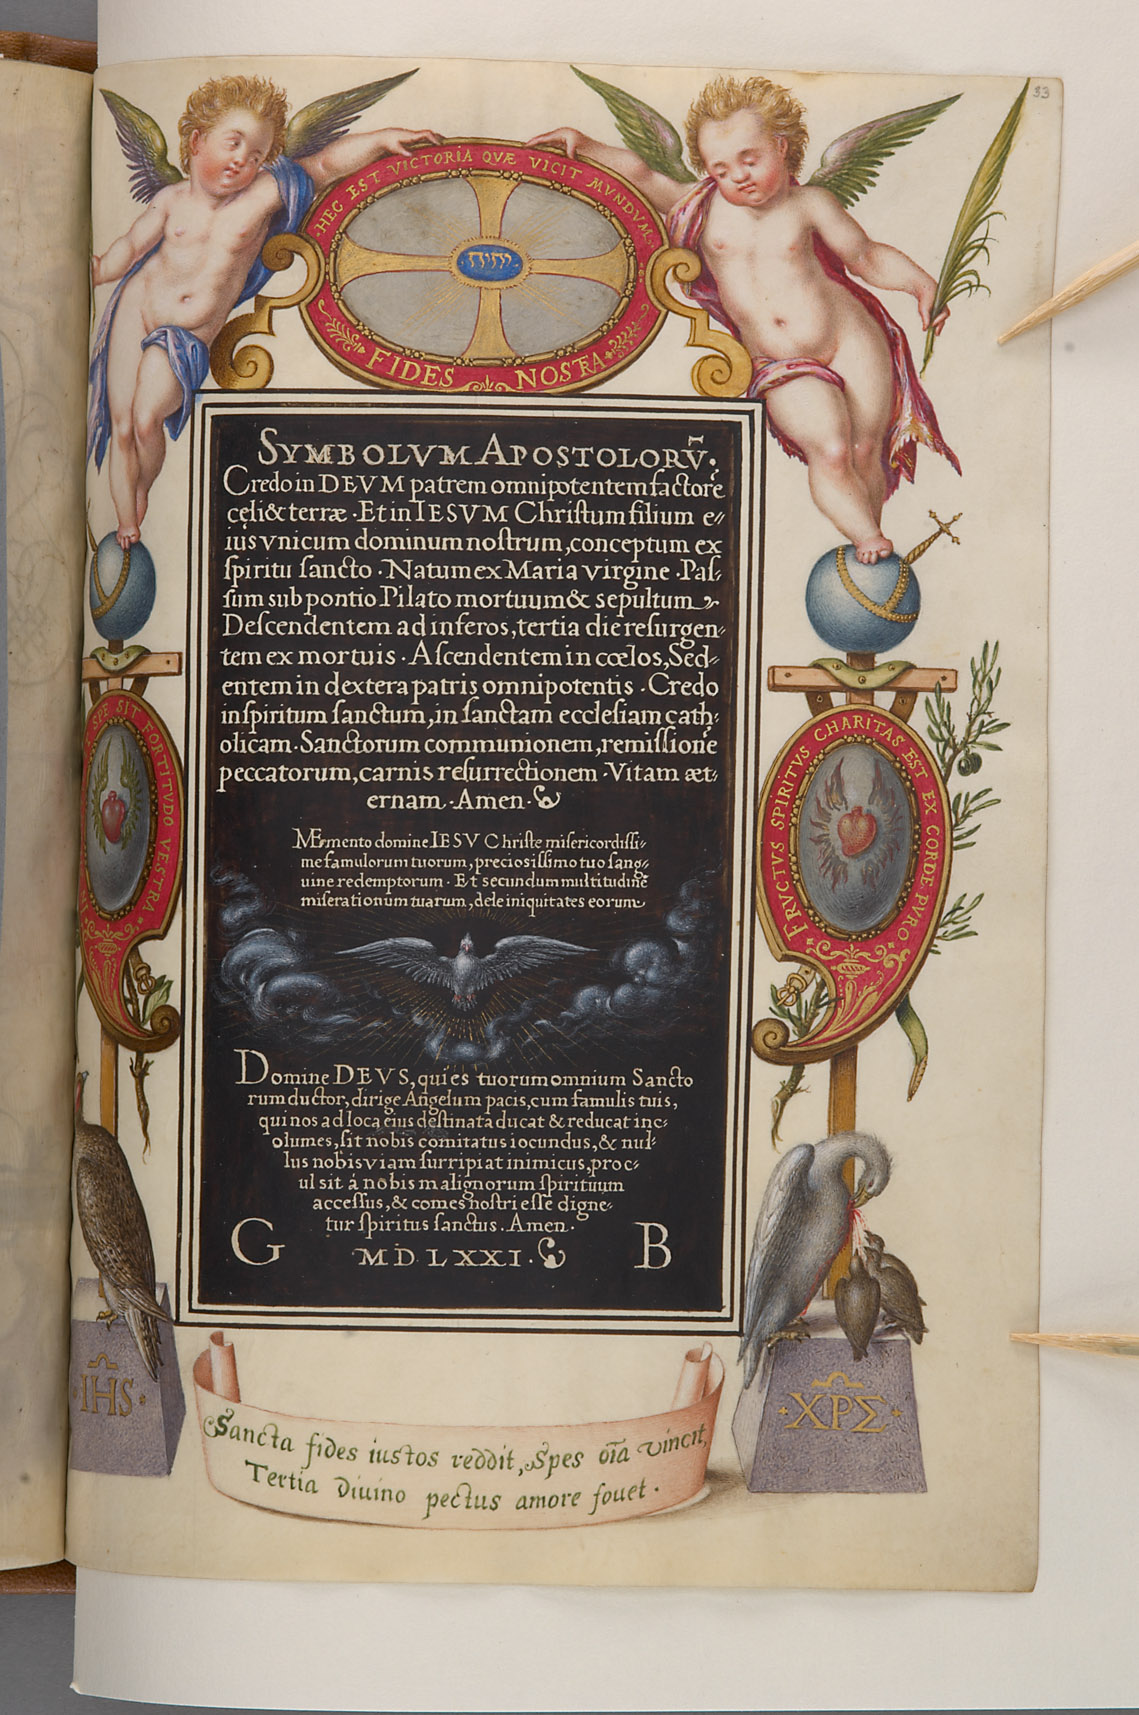 33
HEC EST VICTORIA QVÆ VICIT MVNDVM
יהוה
FIDES NOSTRA
SYMBOLVM APOSTOLORṼ.
Credo in DEVM patrem omnipotentem factorē
cęli & terræ · Et in IESVM Christum filium e⸗
ius vnicum dominum nostrum, conceptum ex
spiritu sancto · Natum ex Maria virgine · Pas⸗
sum sub pontio Pilato mortuum & sepultum
Descendentem ad inferos, tertia die resurgen⸗
tem ex mortuis · Ascendentem in cœlos, Sed⸗
entem in dextera patris omnipotentis · Credo
in spiritum sanctum, in sanctam ecclesiam cath⸗
olicam · Sanctorum communionem, remissionē
peccatorum, carnis resurrectionem · Vitam æt⸗
ernam · Amen ·
SPE SIT FORTITVDO VESTRA
FRVCTVS SPIRITVS CHARITAS EST EX CORDE PVRO
MEmento domine IESV Christe misericordissi⸗
me famulorum tuorum, preciosissimo tuo sang⸗
uine redemptorum · Et secundum multitudinē
miserationum tuarum, dele iniquitates eorum
Domine DEVS, qui es tuorum omnium Sancto
rum ductor, dirige Angelum pacis, cum famulis tuis,
qui nos ad loca eius destinata ducat & reducat inc⸗
olumes, sit nobis comitatus iocundus, & nul⸗
lus nobis viam surripiat inimicus, proc⸗
ul sit á nobis malignorum spirituum
accessus, & comes nostri esse digne⸗
tur spiritus sanctus . Amen ·
G B
MDLXXI ·
·IHS·
·XPΣ·
Sancta fides iustos reddit, Spes oīa vincit,
Tertia diuino pectus amore fouet ·